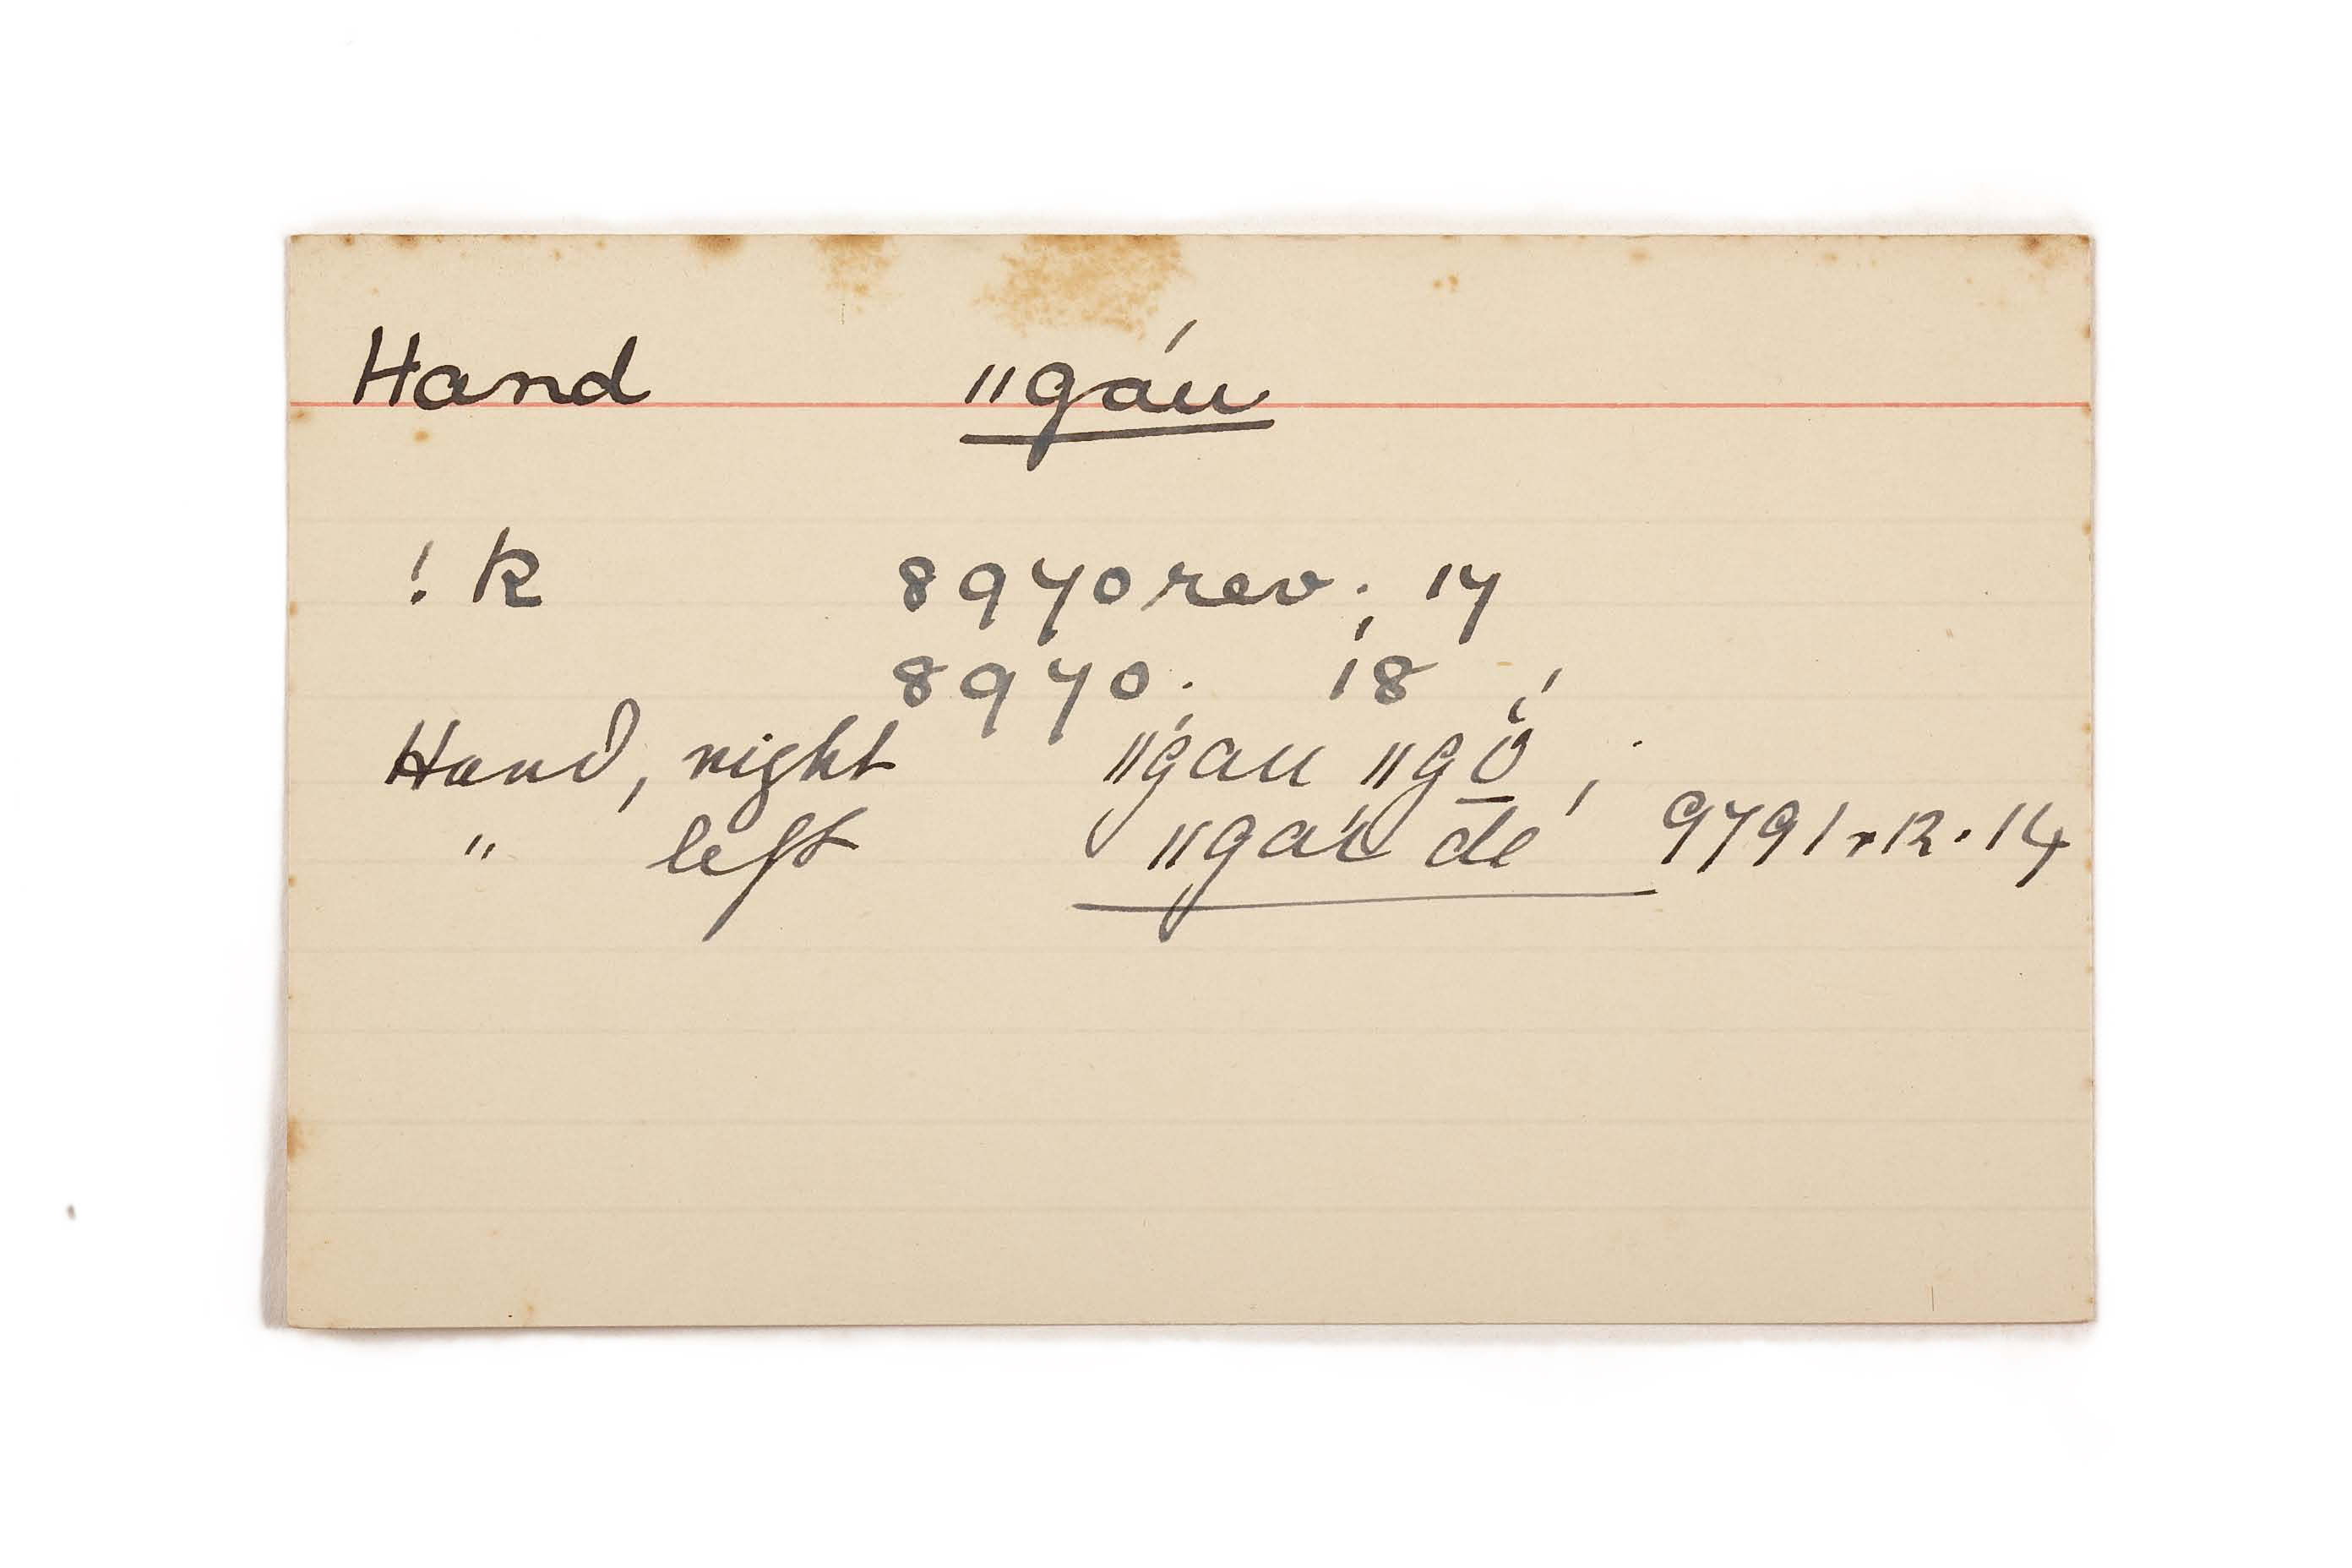 Hand ॥gáu
! k 8970 rev; 17
8970; 18
Hand, right ॥gau ॥gṓ;
" left ॥gaú dé 9791 r. 12. 14